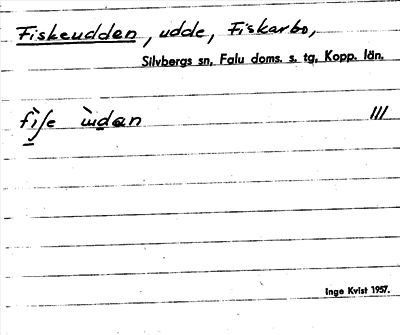 Fiskeudden, udde, Fiskarbo,
Silvbergs sn, Falu doms. s. tg, Kopp. län.
fìʃe ùdən III
Inge Kvist 1957.